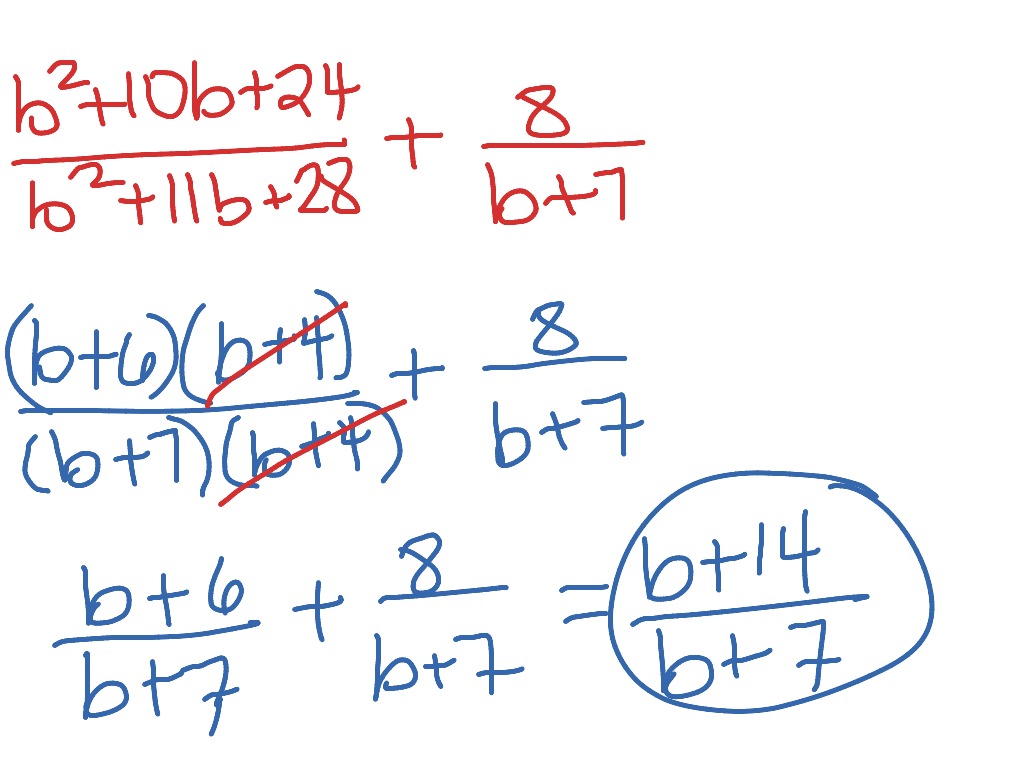 b²+10b+24 / b²+11b+28 + 8 / b+7
(b+6)(b+4) / (b+7)(b+4) + 8 / b+7
b+6 / b+7 + 8 / b+7 = b+14 / b+7